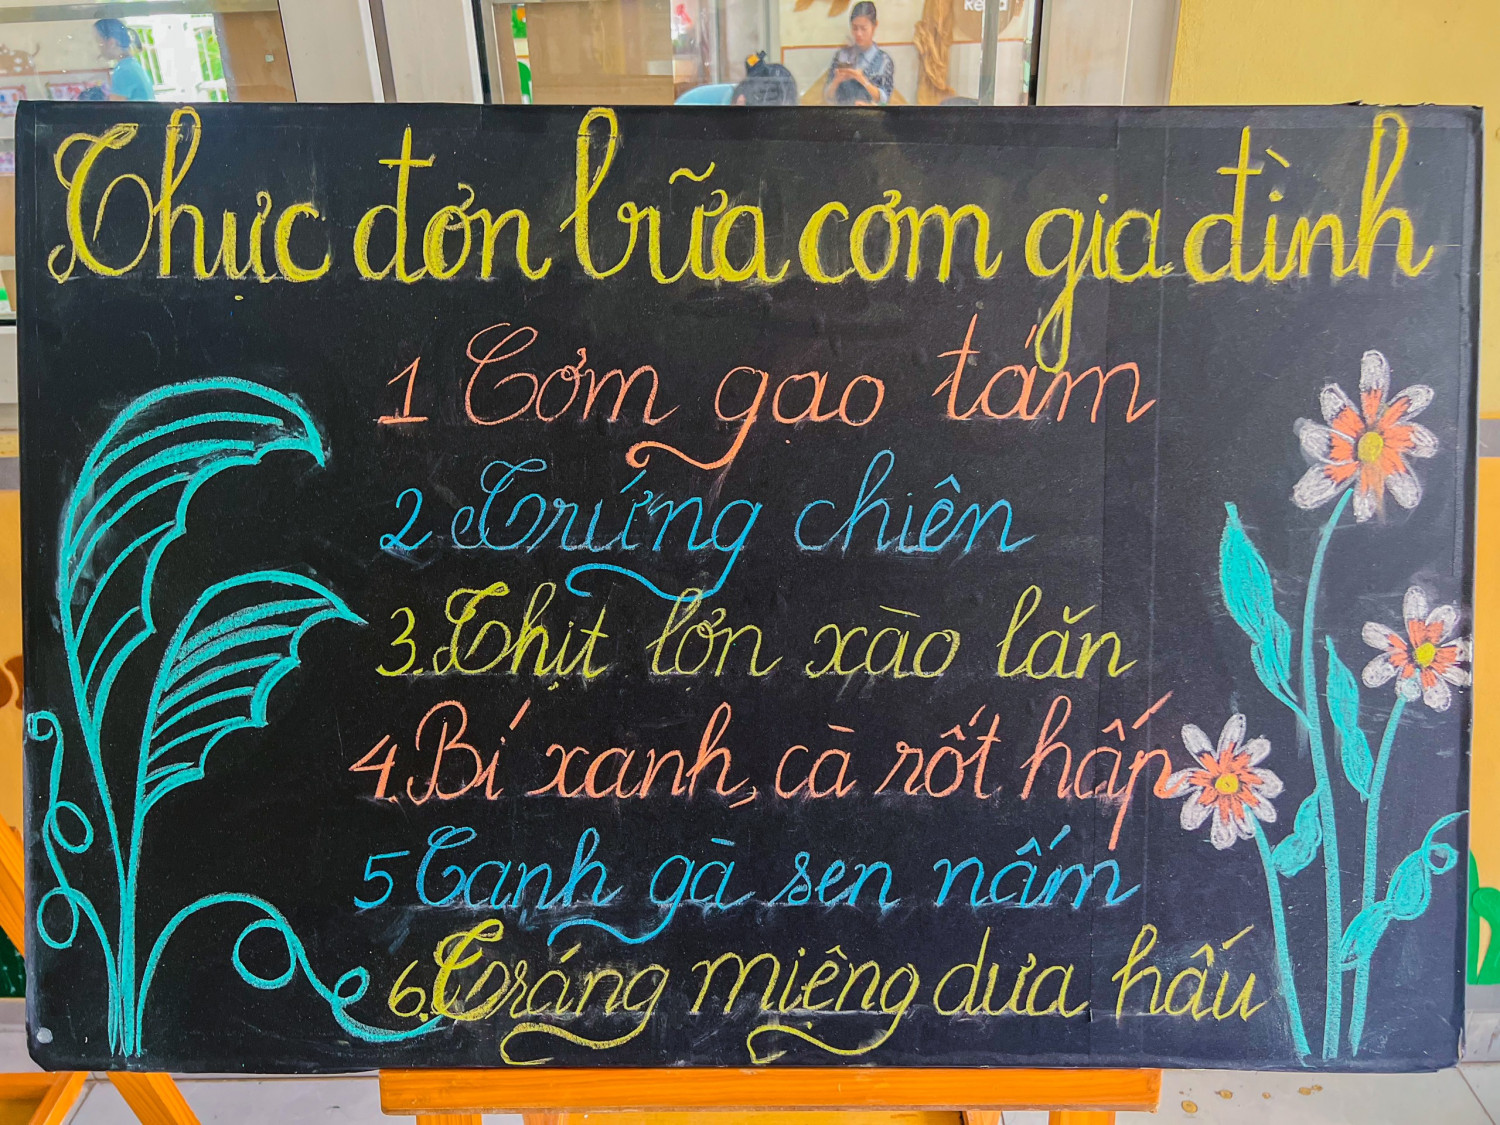 Thực đơn bữa cơm gia đình
1 Cơm gạo tám
2 Trứng chiên
3. Thịt lợn xào lăn
4. Bí xanh, cà rốt hấp
5 Canh gà sen nấm
6. Tráng miệng dưa hấu